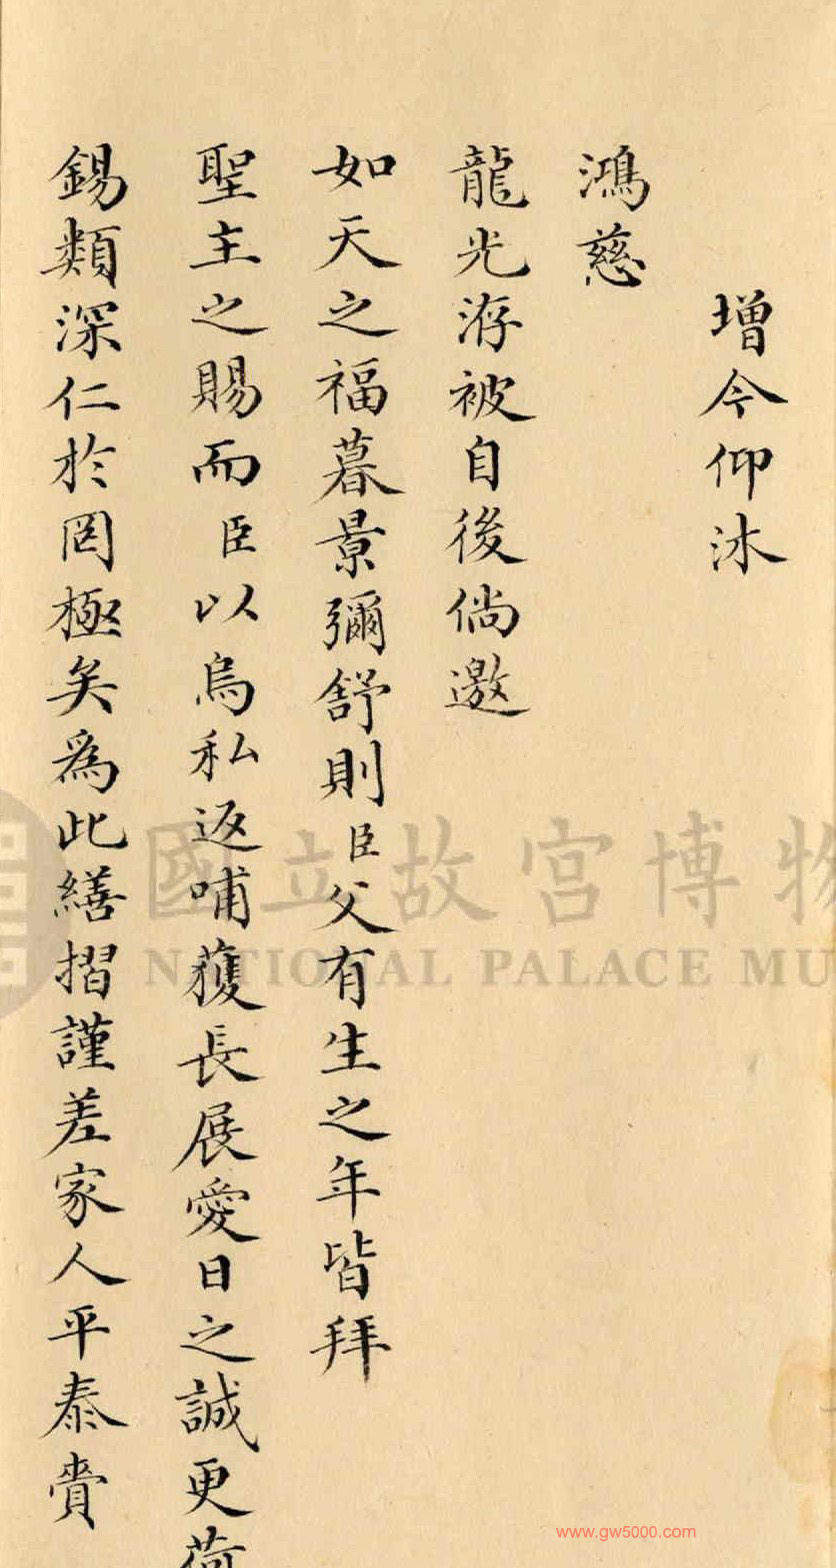 增今仰沐
鴻慈
龍光洊被自後倘邀
如天之福暮景彌舒則臣父有生之年皆拜
聖主之賜而臣以烏私返哺蒦長展愛日之誠更荷
錫類深仁於罔極矣為此繕摺謹差家人平泰賷
國立故宮博物
NATIONAL PALACE MU
www.gw5000.com